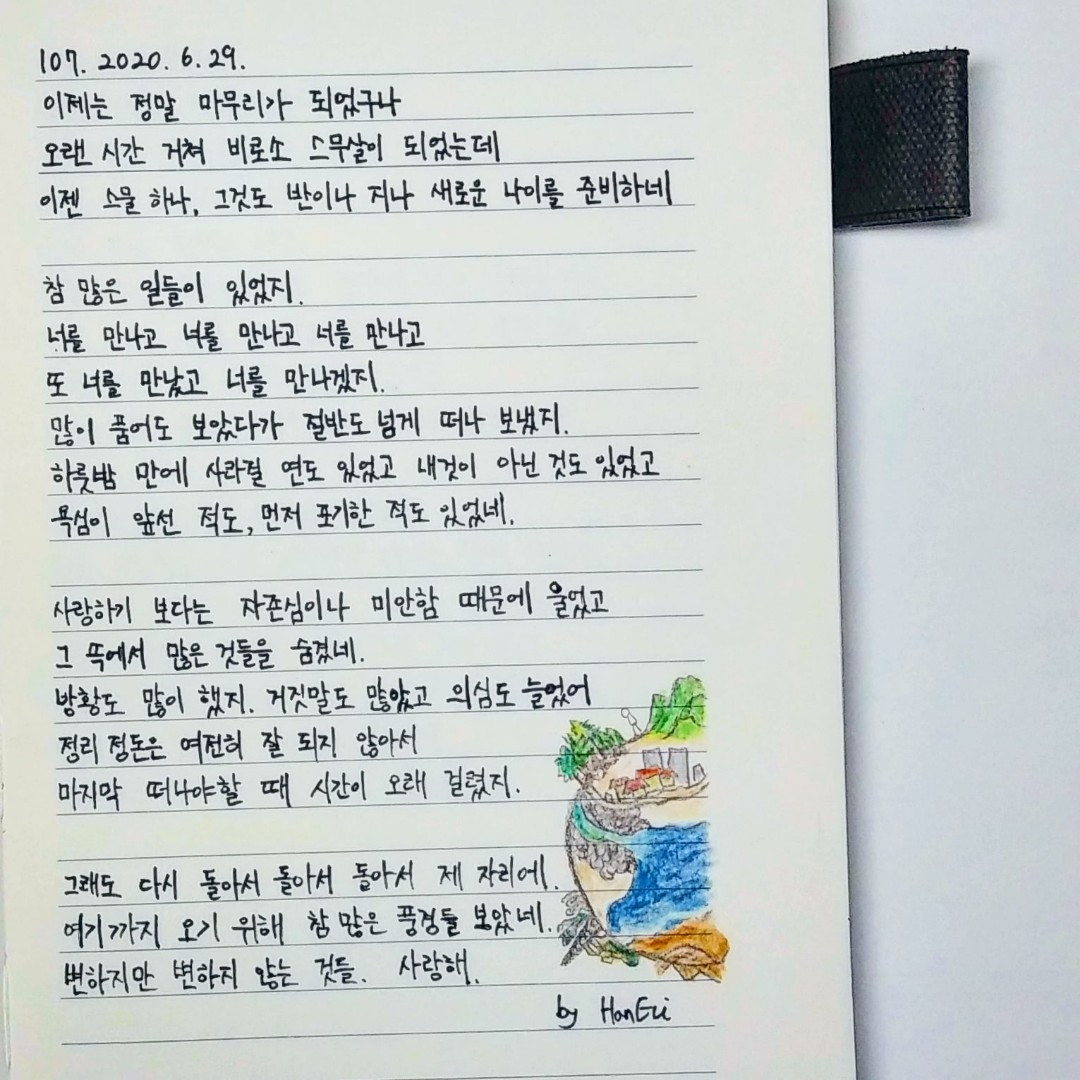 107. 2020. 6. 29.
이제는 정말 마무리가 되었구나
오랜 시간 거쳐 비로소 스무살이 되었는데
이젠 스물 하나, 그것도 반이나 지나 새로운 나이를 준비하네
참 많은 일들이 있었지.
너를 만나고 너를 만나고 너를 만나고
또 너를 만났고 너를 만나겠지.
많이 품어도 보았다가 절반도 넘게 떠나 보냈지.
하룻밤 만에 사라질 연도 있었고 내것이 아닌 것도 있었고
욕심이 앞선 적도, 먼저 포기한 적도 있었네.
사랑하기 보다는 자존심이나 미안함 때문에 울었고
그 뜩에서 많은 것들을 숨겼네.
방황도 많이 했지. 거짓말도 많았고 의심도 늘었어
정리 정돈은 여전히 잘 되지 않아서
마지막 떠나야할 때 시간이 오래 걸렸지.
그래도 다시 돌아서 돌아서 돌아서 제 자리에.
여기까지 오기 위해 참 많은 풍경들 보았네.
변하지만 변하지 않는 것들. 사랑해.
by HanEri